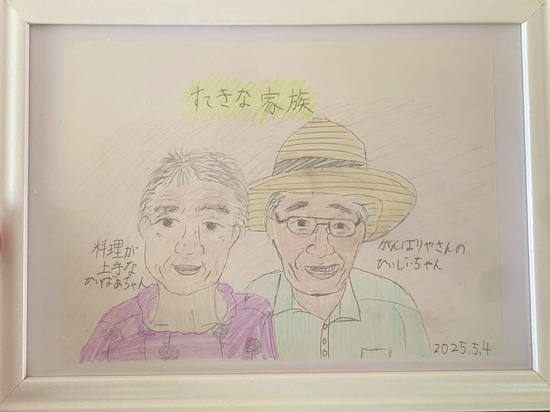 すてきな家族
料理が
上手な
ひいばあちゃん
がんばりやさんの
ひいじいちゃん
2025.5.4